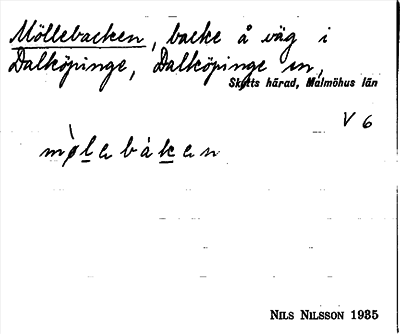 Möllebacken, backe å väg i
Dalköpinge, Dalköpinge sn,
Skytts härad, Malmöhus län
V 6
mø̀labákan
NILS NILSSON 1935